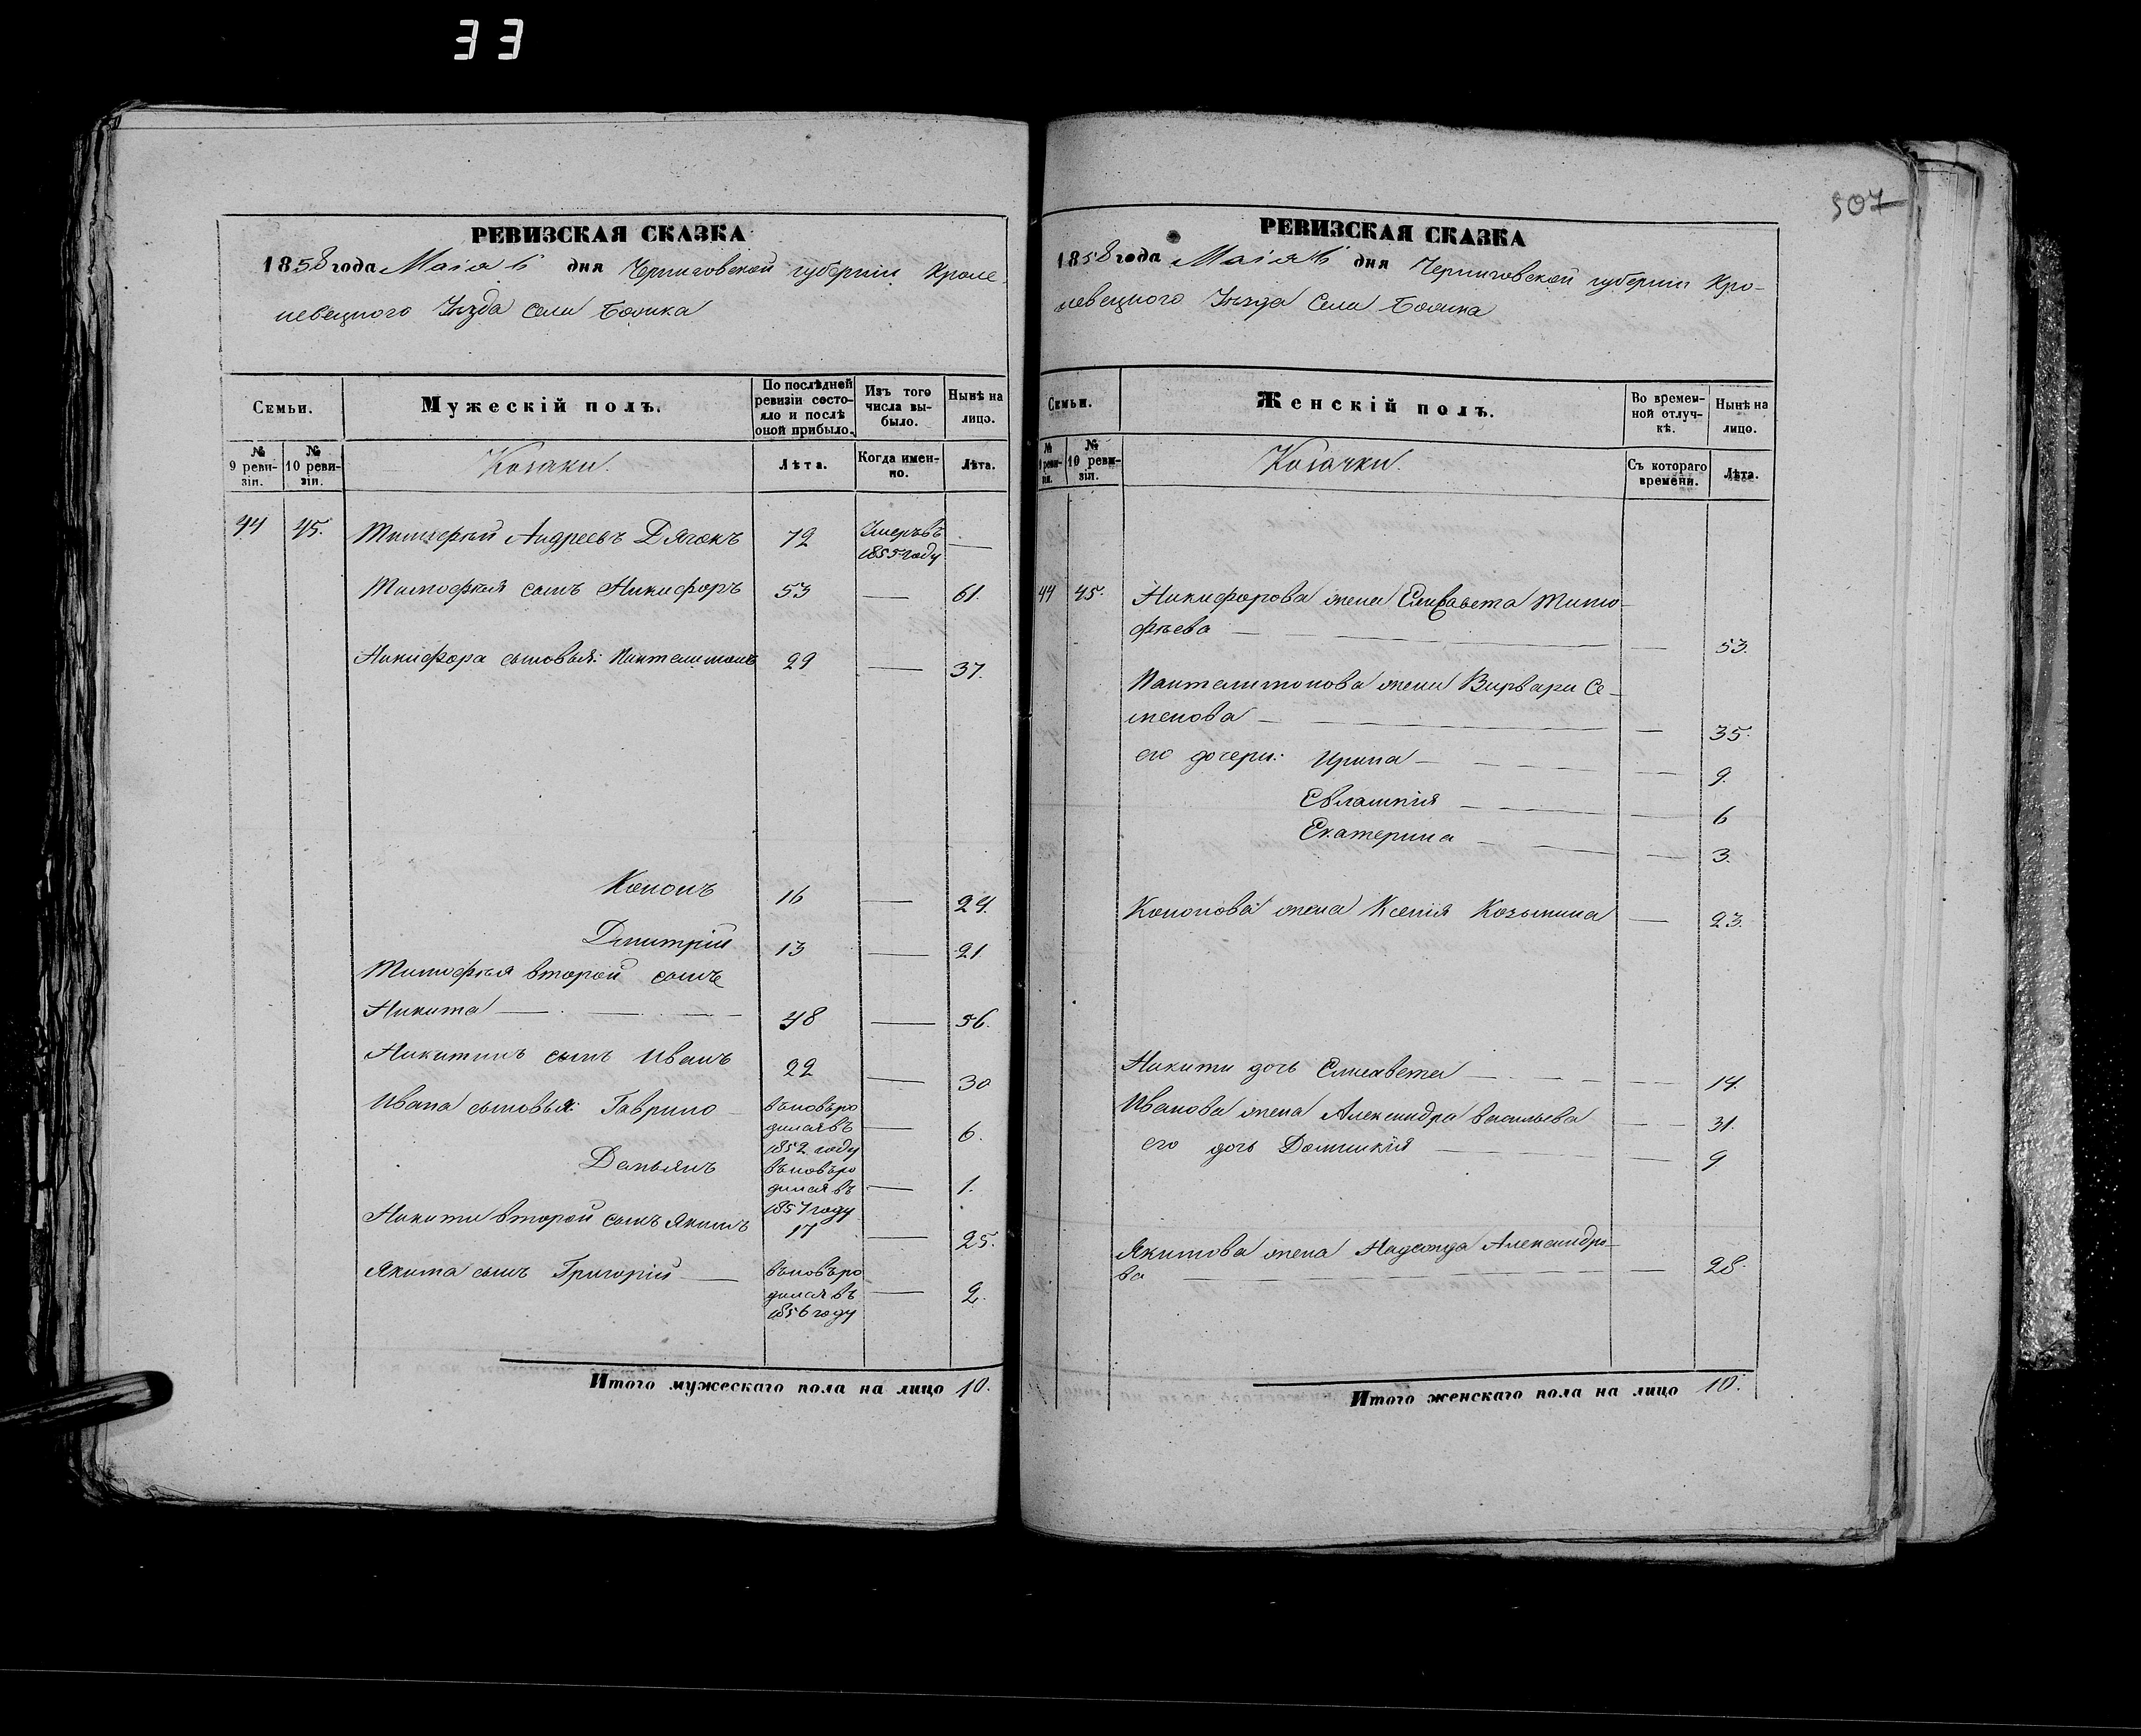 33
507
РЕВИЗСКАЯ СКАЗКА
1858 года Маія 6 дня Черниговской губерніи Кроле-
вецкого Уѣзда Села
Семьи.
Мужескій полъ.
По послѣдней ревизіи состо-
яло и послѣ оной прибыло.
Изъ того числа вы-
было.
Нынѣ на лицо.
№ 9 реви-
зіи.
№ 10 реви-
зіи.
Козаки.
Лѣта.
Когда имен-
но.
Лѣта.
44 45. Тимофей Андреевъ Дячокъ 72 Умеръ въ
1855 году —
Тимофѣя сынъ Никифоръ 53 — 61.
Никифора сыновья: Пантелимонъ 29 — 37.
Кононъ 16 — 24.
Дмитрій 13 — 21.
Тимофѣя второй сынъ
Никита — 48 — 56.
Никитинъ сынъ Иванъ 22 — 30
Ивана сыновья: Гаврило вновьро
дился въ — 6.
1852 году
Демьянъ вновьро
дился въ — 1.
1857 году
Никиты второй сынъ Якимъ 17 — 25.
Якима сынъ Григорій — вновьро
дился въ — 2.
1856 году
Итого мужескаго пола на лицо 10.
РЕВИЗСКАЯ СКАЗКА
1858 года Маія 6 дня Черниговской губерніи Кро-
левецкого Уѣзда Села
Семьи.
Женскій полъ.
Во времен-
ной отлуч-
кѣ.
Нынѣ на лицо.
№ 9 реви-
зіи.
№ 10 реви-
зіи.
Козачки.
Съ котораго времени.
Лѣта.
44 45. Никифорова жена Елисавета Тимо-
фѣева — — 53.
Пантелимонова жена Варвара Се-
менова — — 35.
его дочери: Ирина — — 9.
Евлампія — — 6
Екатерина — — 3.
Кононова жена Ксенія Козьмина — 23.
Никиты дочь Елисавета — — 14.
Иванова жена Александра Васильева — 31.
его дочь Домникія — — 9
Якимова жена Надежда Александро-
ва — — 28.
Итого женскаго пола на лицо 10.